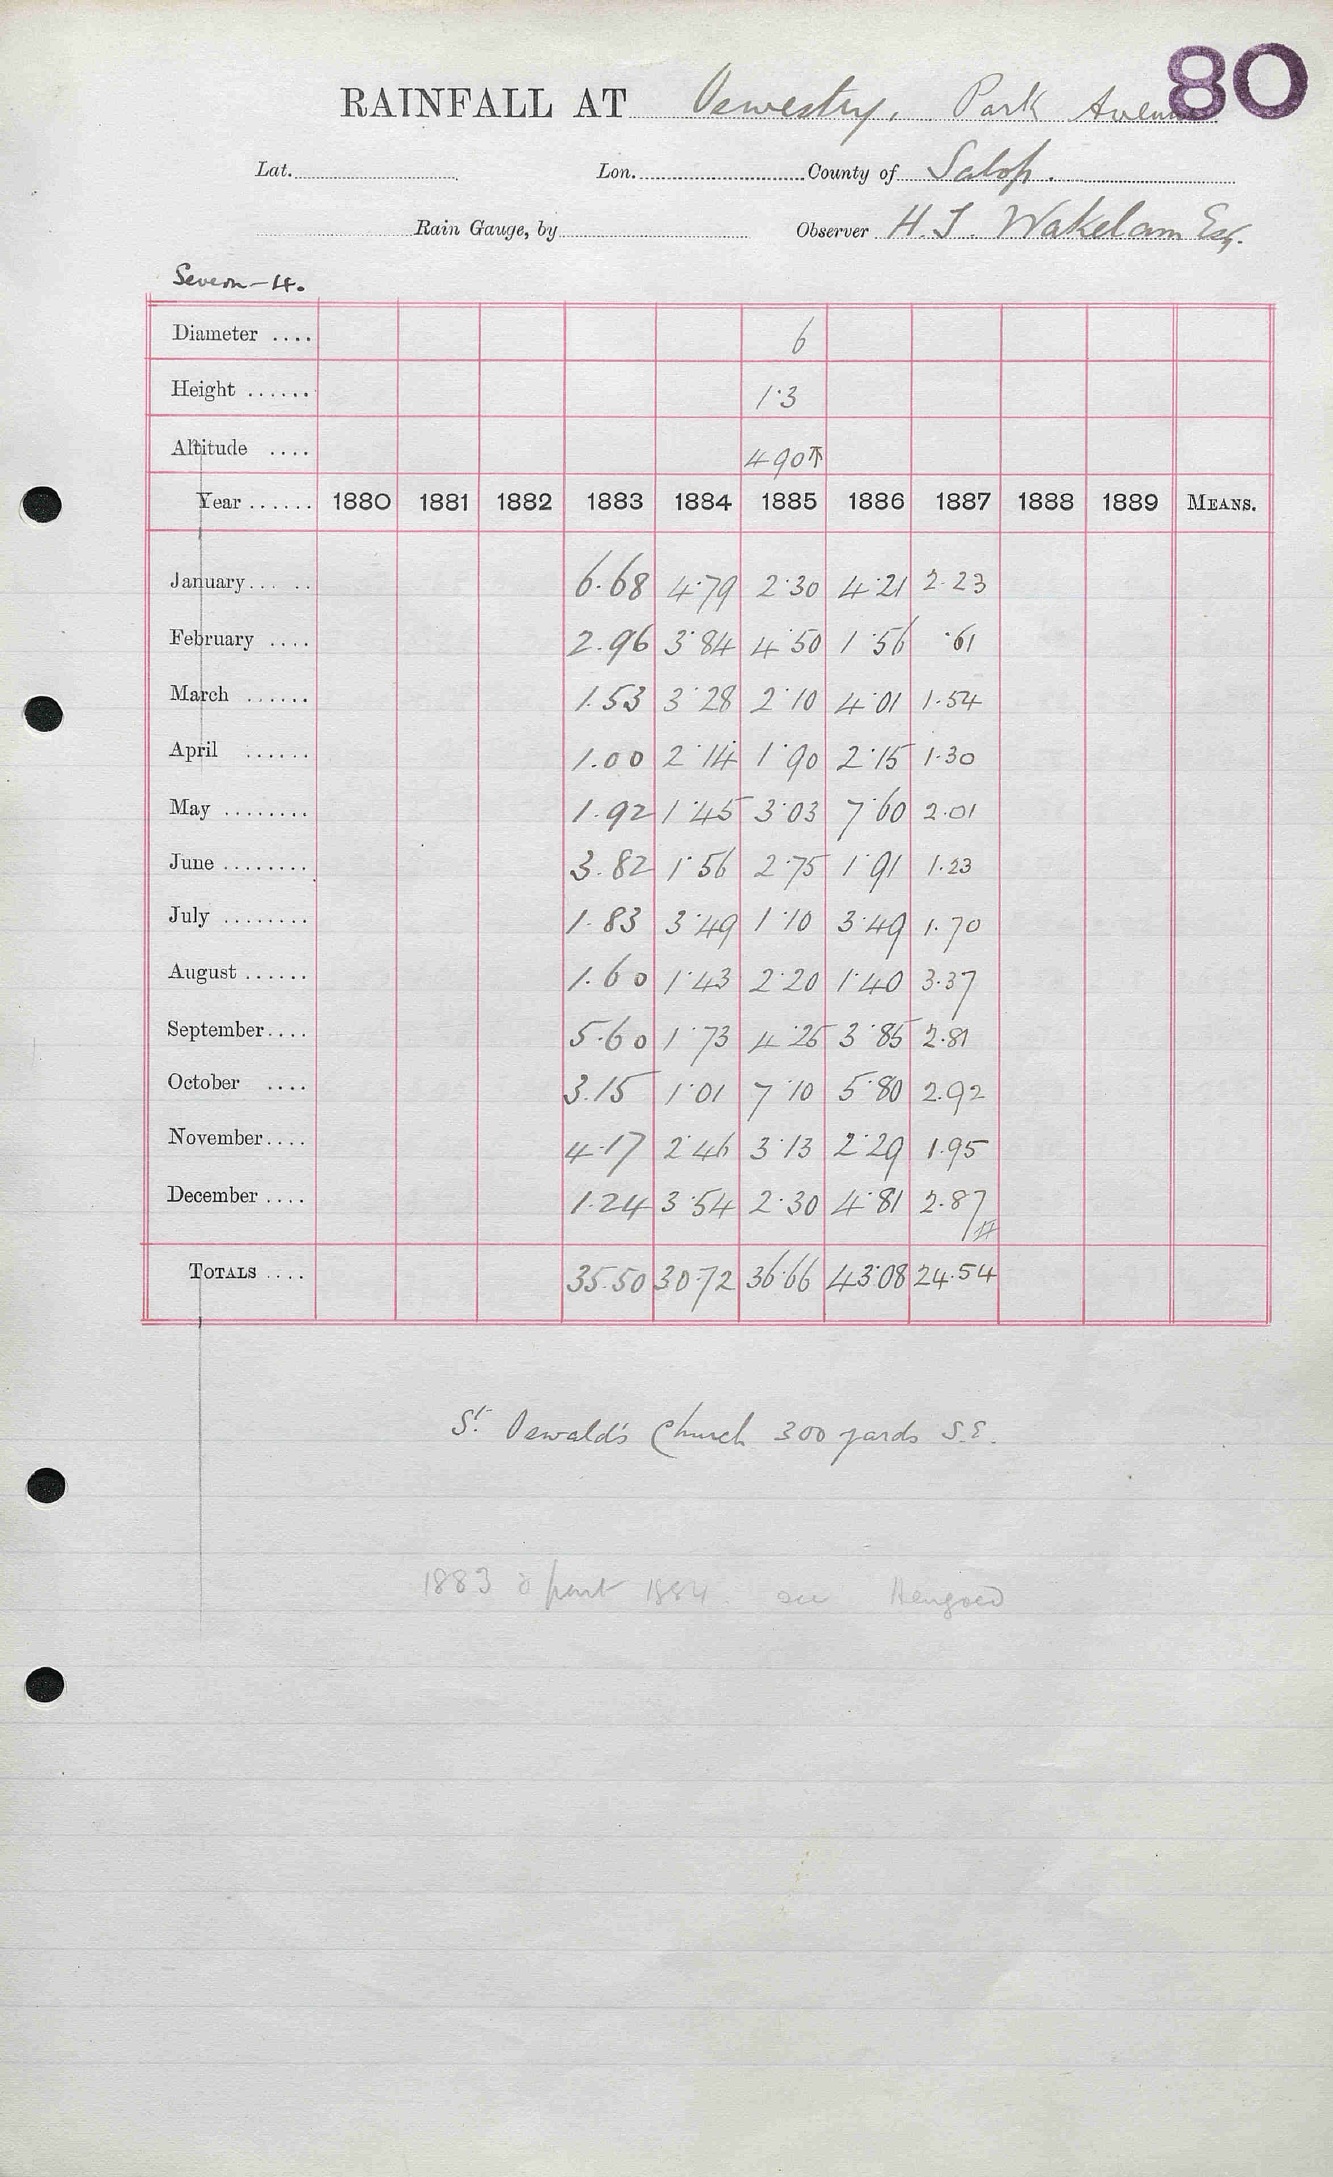 80
RAINFALL AT Oswestry, Park Avenue
Lat. Lon. County of Salop.
Rain Gauge, by Observer H. J. Wakelam Esq.
Severn-4.
Diameter .... 6
Height ...... 1.3
Altitude .... 490
Year ...... 1880 1881 1882 1883 1884 1885 1886 1887 1888 1889 MEANS.
January ..... 6.68 4.79 2.30 4.21 2.23
February .... 2.96 3.84 4.50 1.56 .61
March ...... 1.53 3.28 2.10 4.01 1.54
April ...... 1.00 2.14 1.90 2.15 1.30
May ........ 1.92 1.45 3.03 7.60 2.01
June ........ 3.82 1.56 2.75 1.91 1.23
July ........ 1.83 3.49 1.10 3.49 1.70
August ...... 1.60 1.43 2.20 1.40 3.37
September .... 5.60 1.73 4.25 3.85 2.81
October .... 3.15 1.01 7.10 5.80 2.92
November .... 4.17 2.46 3.13 2.29 1.95
December .... 1.24 3.54 2.30 4.81 2.87
TOTALS .... 35.50 30.72 36.66 43.08 24.54
St. Oswald's Church 300 yards S.E.
1883 & part 1884. see Hengoed